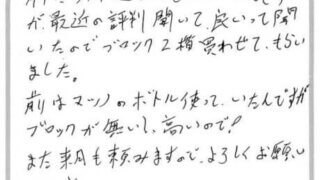 が最近の評判聞いて、良いって聞
いたのでブロック2揃買わせて、もらい
ました。
前はマツノのボトル使って、いたんですが
ブロックが無いし、高いので!
また来月も頼みますので、よろしくお願い